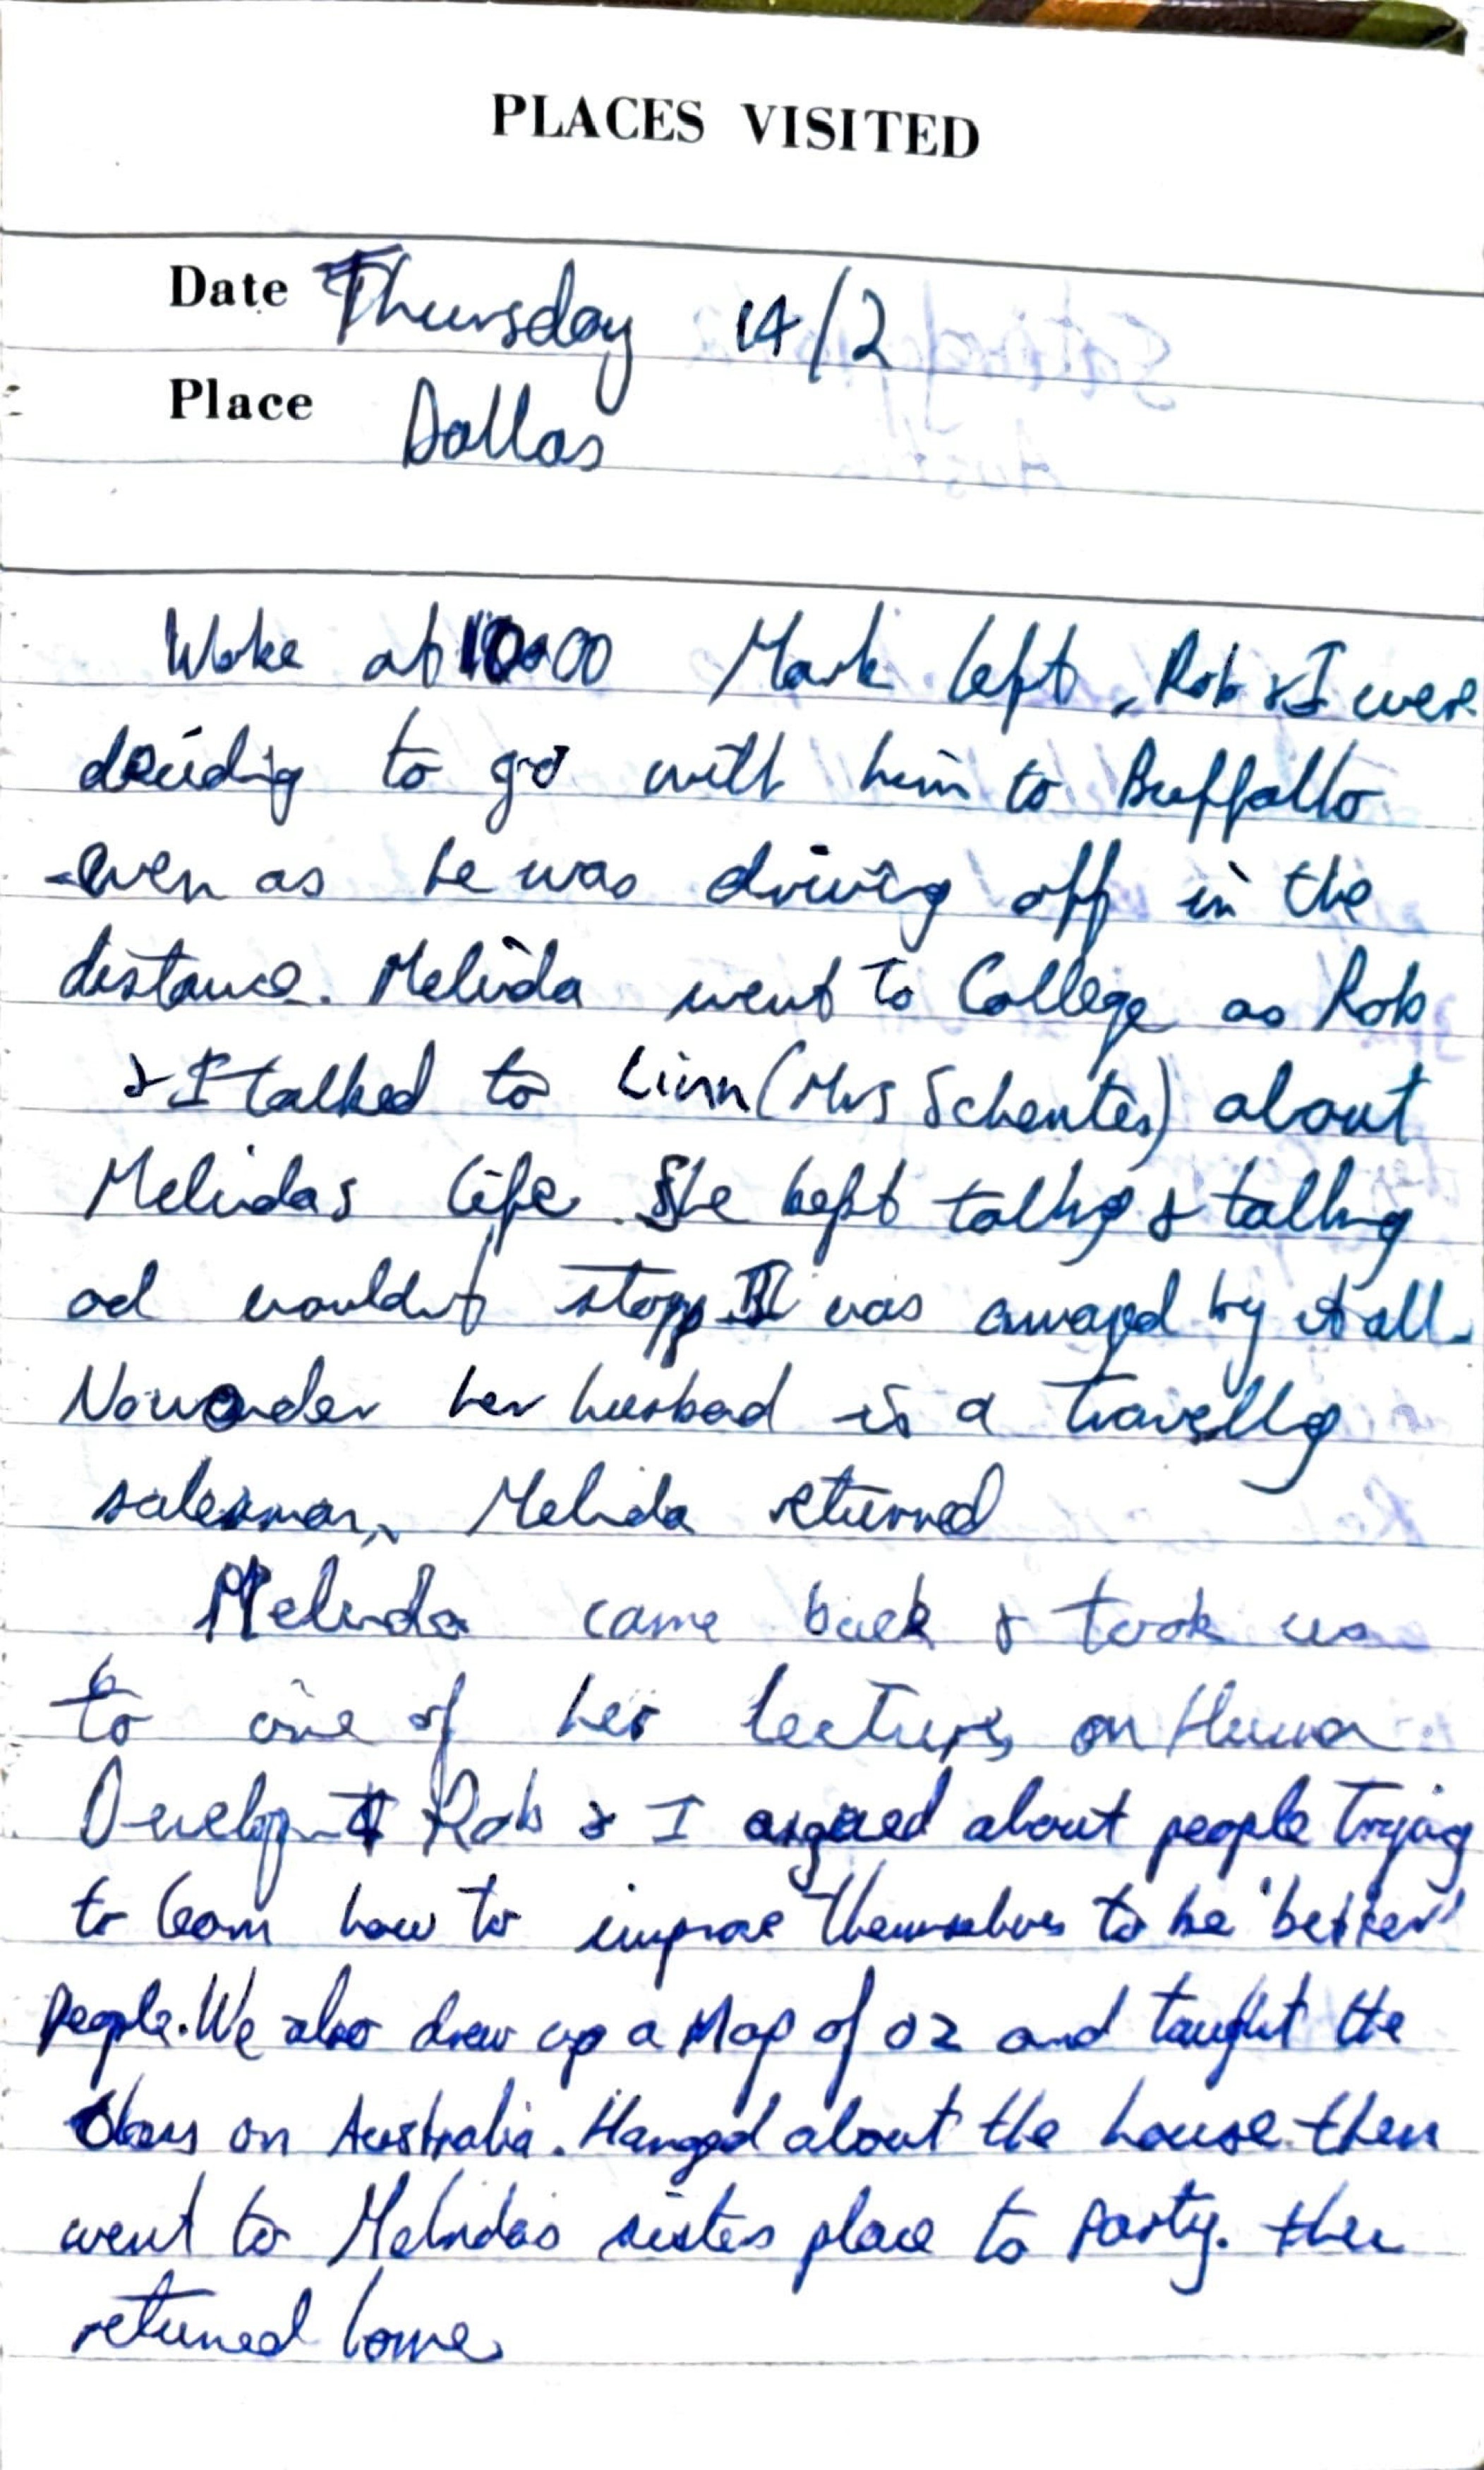 PLACES VISITED
Date Thursday 14/2
Place Dallas
Woke at 10:00 Mark left, Rob & I were
deciding to go with him to Buffallo
even as he was driving off in the
distance. Melinda went to College as Rob
& I talked to Linn (Mrs ) about
Melindas life. She kept talking & talking
and wouldnt stop I was amazed by it all
Nowonder her husband is a travelling
salesman, Melinda returned
Melinda came back & took us
to one of her lectures, on Human
Development Rob & I argued about people trying
to learn how to improve themselves to be 'better'
people. We also drew up a Map of OZ and taught the
class on Australia. Hanged about the house then
went to Melindas sisters place to party. then
returned home